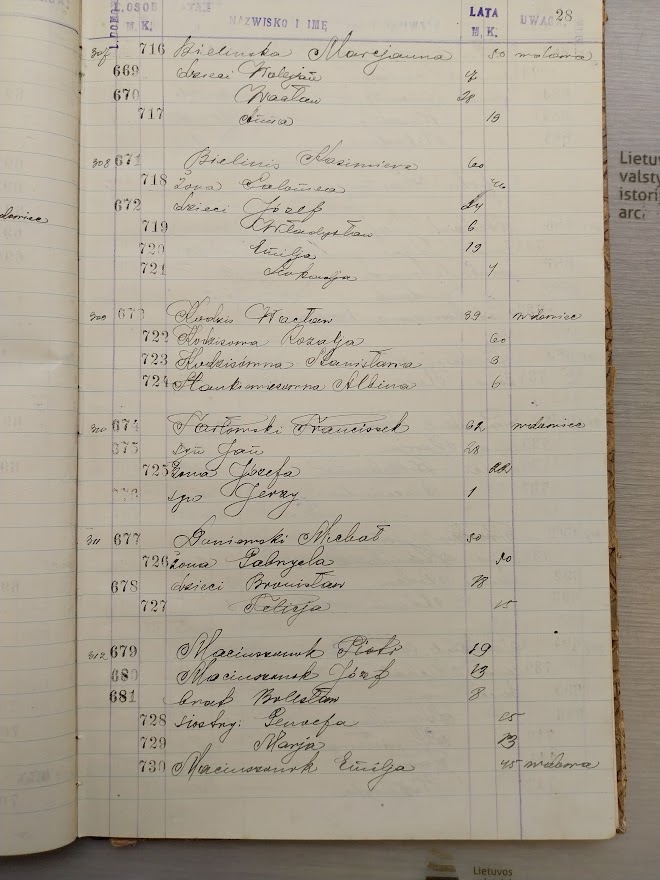 L.DOMU L.OSOB NAZWISKO I IMIĘ LATA UWAGI 28
M. K. M. K.
307 716 Bielinska Marcjanna 50 wdowa
669 dzieci Walerjan
670 Wacław 28
717 Anna 19
308 671 Bielinis Kazimierz 60
718 żona Salomea
672 dzieci Józef 24
dowiec
719 Władysław 6
720 Emilja 19
721
309 673 Kodzis Wacław 39 wdowiec
722 Kodzisowa Rozalja 60
723 Kodzisówna Stanisława 3
724 Albina 6
310 674 Parłowski Franciszek 62 wdowiec
675 syn Jan 28
725 żona Józefa 22
676 syn Jerzy 1
311 677 Daniewski Michał 50
726 żona Gabryela 50
678 dzieci Bronisław 18
727 Felicja 15
312 679 Maciuszonok Piotr 19
680 Maciuszonok Józef 13
681 brat Bolesław 8
728 siostry: Genoefa 15
729 Marja 13
730 Maciuszonok Emilja 45 wdowa
Lietuvos
valsty
istori
arc.
Lietuvos